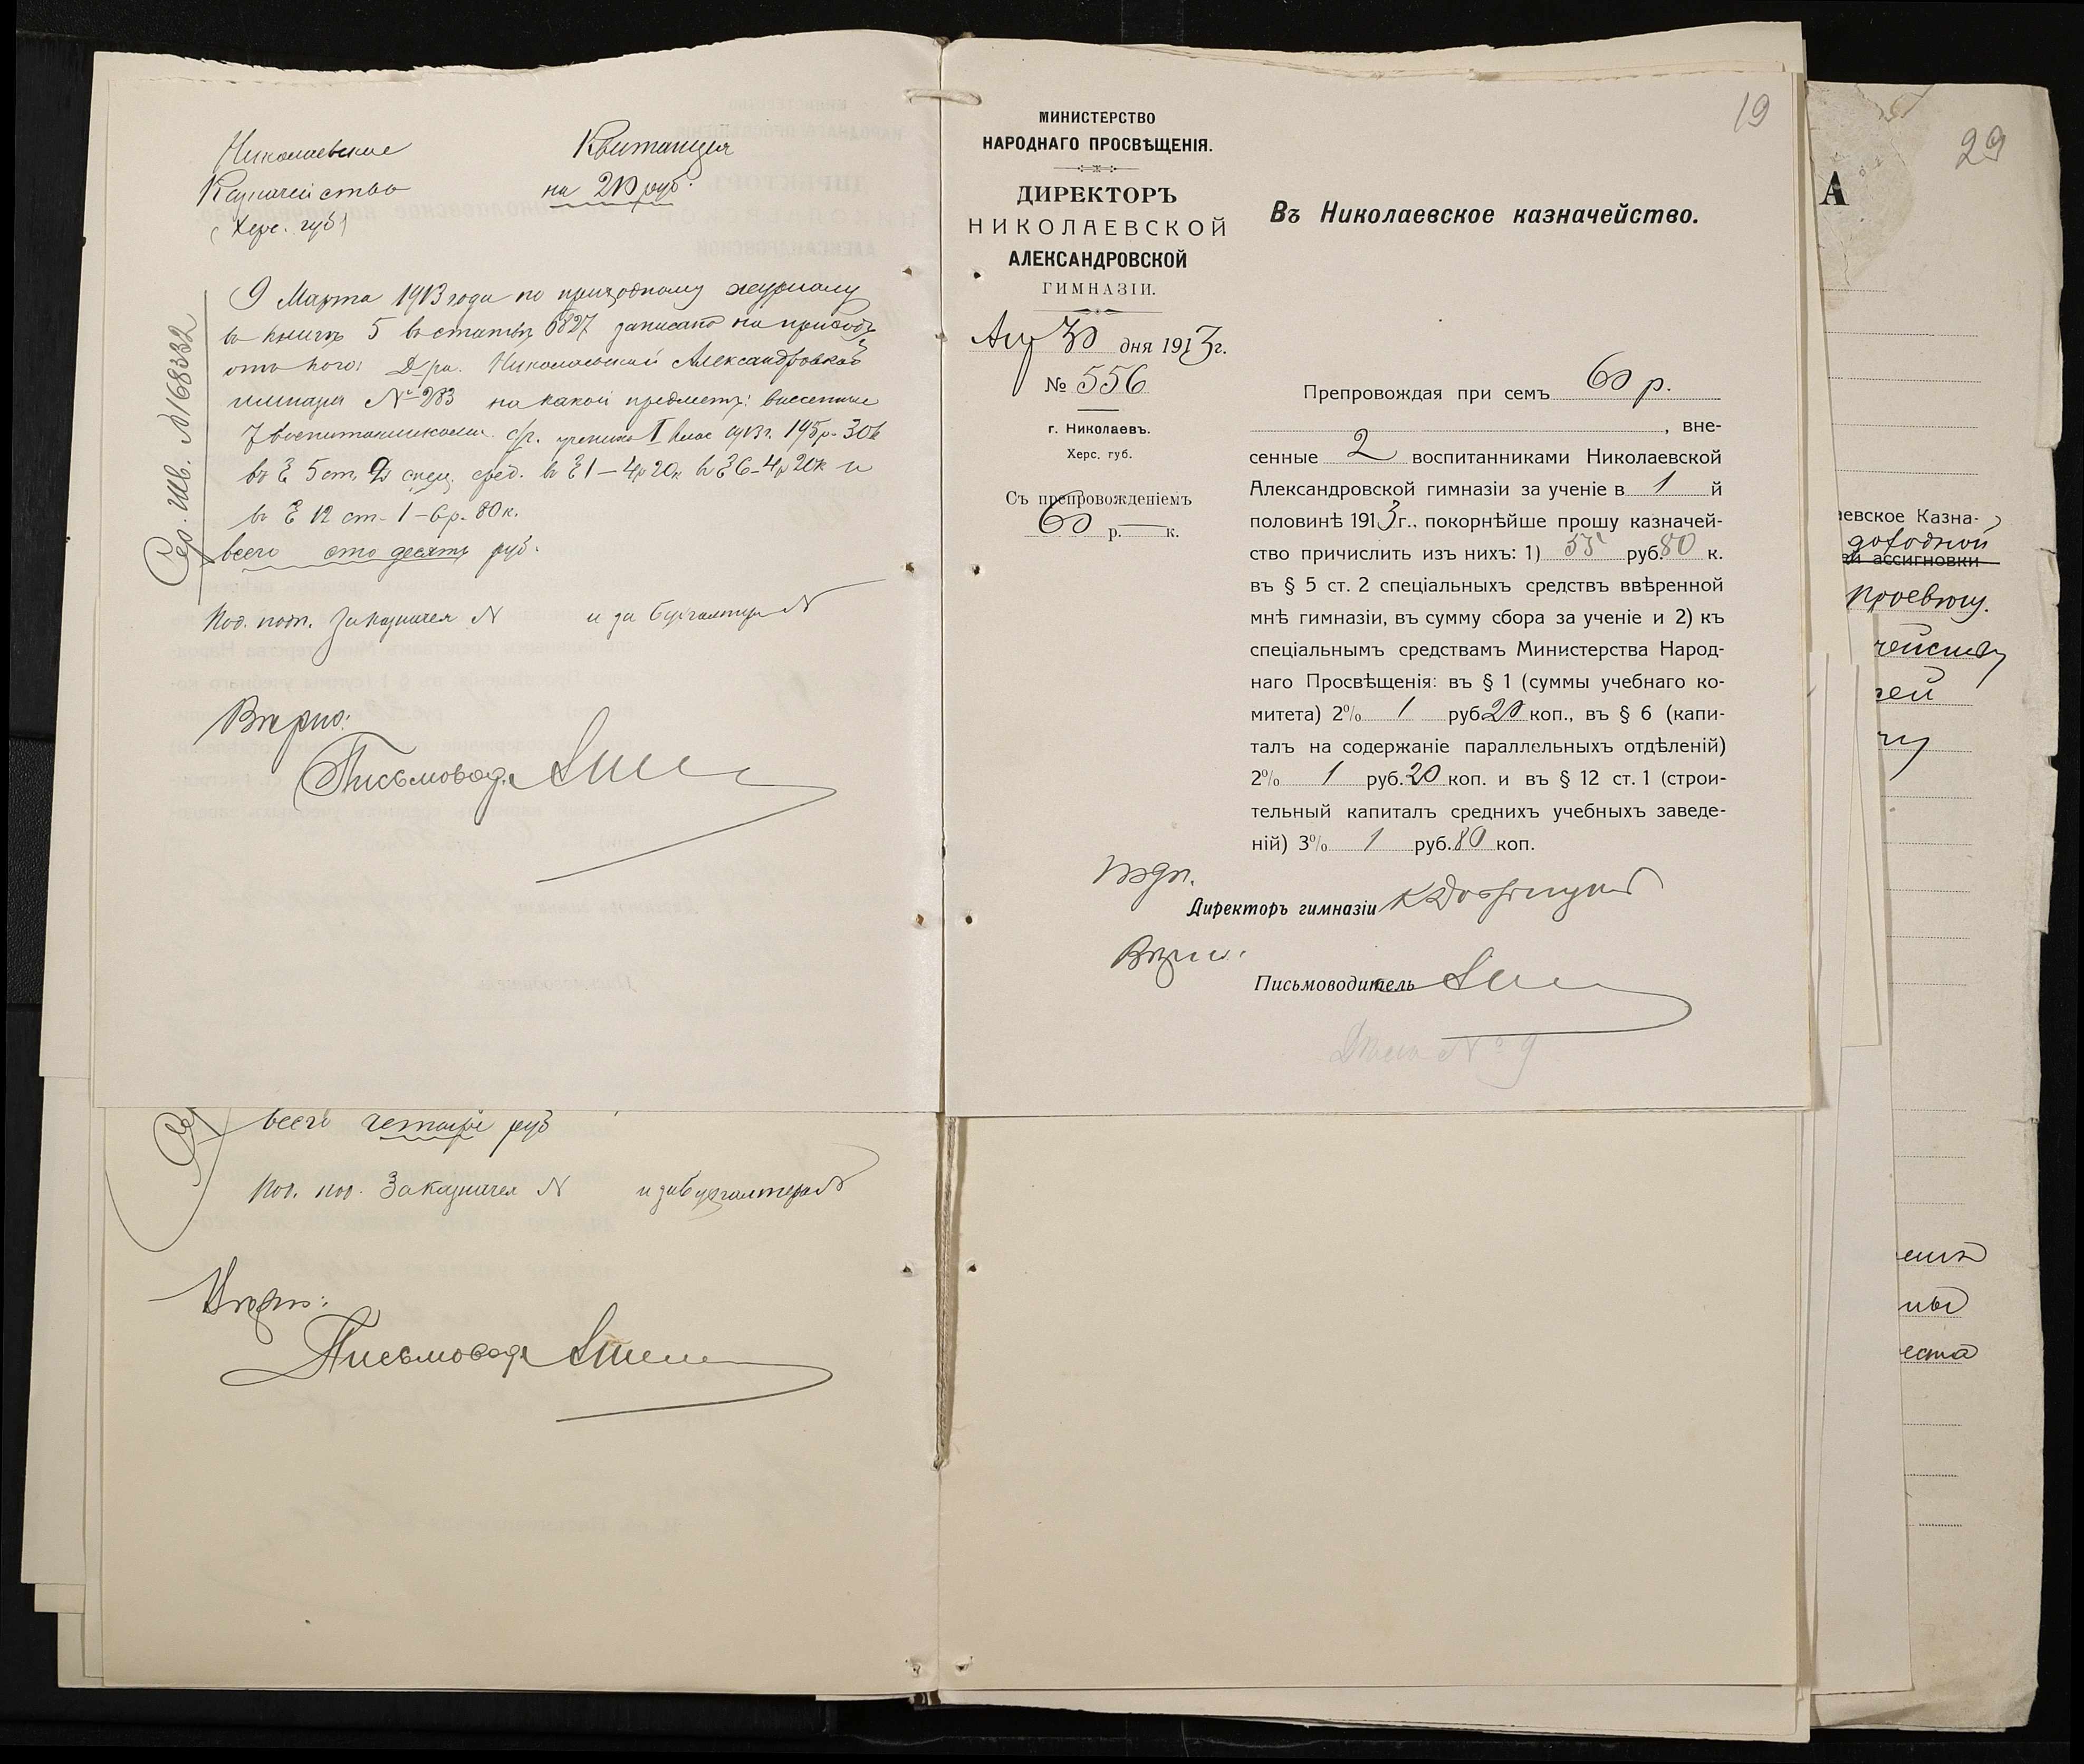 Николаевские
Казначейство
(Херс. губ)
Квитанция
на 210 руб.
Сер. шв. №168332
9 Марта 1913 года по приходному журналу
в книгѣ 5 в статьѣ 6827 записано на приходъ
отъ кого: Д-ра. Николаевской Александровской
гимназіи № 283 на какой предметъ: внесенные
7 воспитанниками 1913г. 195р. 30к
въ § 5 ст. 2 спец. сред. в § 1 – 4р 20к в § 6 – 4р 20к и
в § 12 ст. 1 – 6р. 80к.
всего сто десять руб.
Под. подп. За казначея N и за бухгалтера N
Вѣрно:
Письмовод.
всего четыре руб
Под. под. За казначея N и за бухгалтера N
Вѣрно:
Письмовод
19
МИНИСТЕРСТВО
НАРОДНАГО ПРОСВѢЩЕНІЯ.
ДИРЕКТОРЪ
НИКОЛАЕВСКОЙ
АЛЕКСАНДРОВСКОЙ
ГИМНАЗІИ.
Апр 30 дня 1913г.
№ 556
г. Николаевъ.
Херс. губ.
Съ препровожденіемъ
60 р. — к.
Въ Николаевское казначейство.
Препровождая при семъ 60 р.
, вне-
сенные 2 воспитанниками Николаевской
Александровской гимназіи за ученіе в 1 й
половинѣ 1913г., покорнѣйше прошу казначей-
ство причислить изъ нихъ: 1) 55 руб. 80 к.
въ § 5 ст. 2 спеціальныхъ средствъ ввѣренной
мнѣ гимназіи, въ сумму сбора за ученіе и 2) къ
спеціальнымъ средствамъ Министерства Народ-
наго Просвѣщенія: въ § 1 (суммы учебнаго ко-
митета) 2% 1 руб. 20 коп., въ § 6 (капи-
талъ на содержаніе параллельныхъ отдѣленій)
2% 1 руб. 20 коп. и въ § 12 ст. 1 (строи-
тельный капиталъ среднихъ учебныхъ заведе-
ній) 3% 1 руб. 80 коп.
подп.
Директоръ гимназіи
Вѣрно:
Письмоводитель
Дѣло № 9
29
А
аевское Казна-
доходной
ей ассигновки